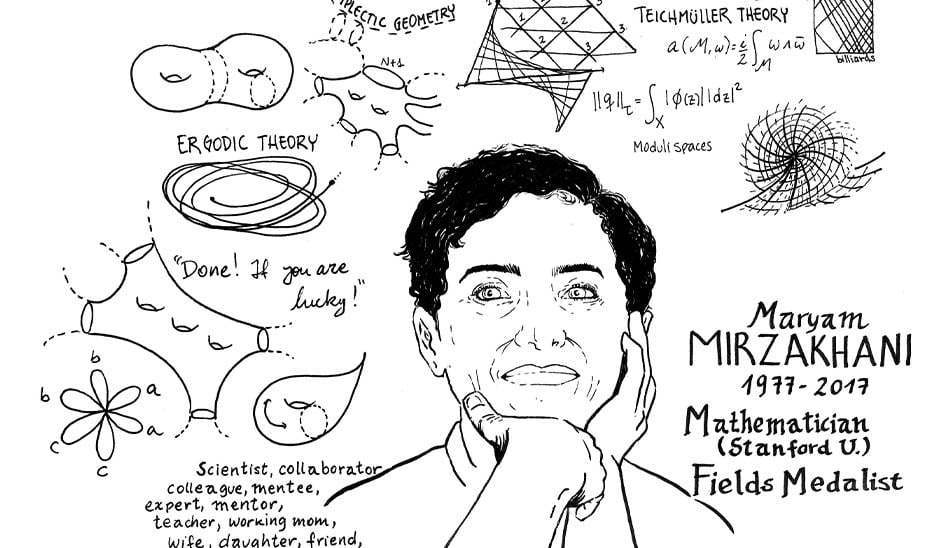 GEOMETRY
N+1
1
3
1
2
3
2
3
TEICHMÜLLER THEORY
a(M,ω)=i/2∫_M ω∧ω̄
billiards
||q||_τ=∫_X |ϕ(z)||dz|²
Moduli spaces
ERGODIC THEORY
"Done! If you are
lucky!"
b
b
a
a
c
c
Maryam
MIRZAKHANI
1977-2017
Mathematician
(Stanford U.)
Fields Medalist
Scientist, collaborator
colleague, mentee,
expert, mentor,
teacher, working mom,
wife, daughter, friend,